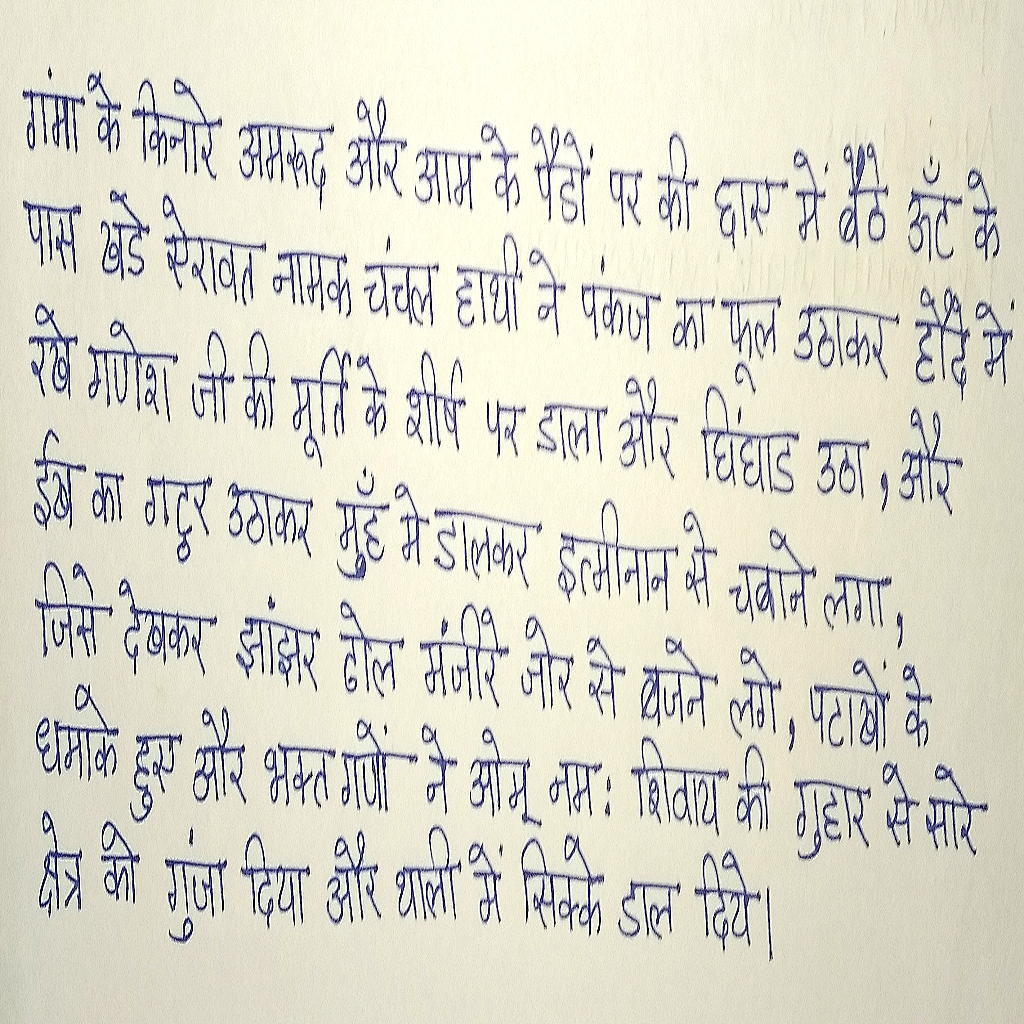 गंगा के किनारे अमरूद और आम के पैडों पर की छाए में बैठे ऊँट के
पास खडे ऐरावत नामक चंचल हाथी ने पंकज का फूल उठाकर हौदे में
रखे गणेश जी की मूर्ति के शीर्ष पर डाला और चिंघाड उठा, और
ईख का गट्ठर उठाकर मुँह मे डालकर इत्मीनान से चबाने लगा,
जिसे देखकर झांझर ढोल मंजीरे जोर से बजने लगे, पटाखों के
धमाके हुए और भक्त गणों ने ओम् नमः शिवाय की गुहार से सारे
क्षेत्र को गुंजा दिया और थाली में सिक्के डाल दिये।